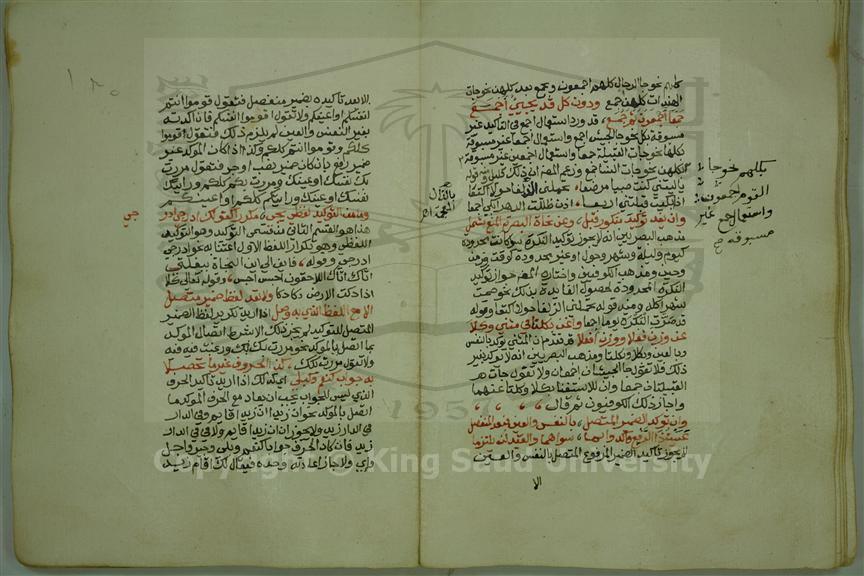 كلهم نحو جا الرجال كلهم اجمعون وجمع بعد كلهن نحو جات
الهندات كلهن جمع ودون كل قد يجيء أجمع
جمعا أجمعون ثم جمع قد ورد استعمال اجمع في التاكيد غير
مسبوقة بكل نحو جا الجيش اجمع واستعمال جمعا غير مسبوقة
بكلها نحو جات القبيلة جمعا واستعمال اجمعين غير مسبوقة
بكلهن نحو جات النسا جمع وزعم المصنف ان ذلك قليل ومنه قوله
يا ليتني كنت صبيا مرضعا تحملني الذلفا حولا اكتعا
اذا بكيت قبلتني اربعا اذن ظللت الدهر ابكي اجمعا
وإن يفد توكيد منكور قبل وعن نحاة البصرة المنع شمل
مذهب البصريين انه لا يجوز توكيد النكرة سوا كانت محدودة
كيوم وليلة وشهر وحول او غير محدودة كوقت وزمن
وحين ومذهب الكوفيين واختاره المصنف جواز توكيد
النكرة المحدودة لحصول الفايدة بذلك نحو صمت
شهرا كله ومنه قوله تحملني الذلفا حولا اكتعا وقوله
قد صرت البكرة يوما اجمعا واغن بكلتا في مثنى وكلا
عن وزن فعلاء ووزن أفعلا قد تقدم ان المثنى يوكد بالنفس
والعين وبكلا وكلتا ومذهب البصريين انه لا يوكد بغير
ذلك فلا تقول جا الجيشان اجمعان ولا تقول جات
القبيلتان جمعاوان للاستغنا بكلا وكلتا عنهما
واجاز ذلك الكوفيون ثم قال
وإن توكد الضمير المتصل بالنفس والعين فبعد المنفصل
عنيت ذا الرفع وأكدوا بما سواهما والقيد لن يلتزما
لا يجوز تاكيد الضمير المرفوع المتصل بالنفس والعين
الا
بكلهم نحو جا
القوم اجمعون
واستعمال جمع غير
مسبوقة
الا بعد تاكيده بضمير منفصل فتقول قوموا انتم
انفسكم او اعينكم ولا تقول قوموا انفسكم فاذا اكدته
بغير النفس والعين لم يلزم ذلك فتقول قوموا
كلكم وقوموا انتم كلكم وكذا اذا كان الموكد غير
ضمير رفع بان كان ضمير نصب او جر فتقول مررت
بك نفسك او عينك ومررت بكم كلكم ورايتك
نفسك او عينك ورايتكم كلكم
وما من التوكيد لفظي يجي مكررا كقولك ادرجي ادر
جي
هذا هو القسم الثاني من قسمي التوكيد وهو التوكيد
اللفظي وهو تكرار اللفظ الاول اعتنا به نحو ادرجي
ادرجي وقوله فاين الى اين النجاة ببغلتي
اتاك اتاك اللاحقون احبس احبس وقوله تعالى كلا
اذا دكت الارض دكا دكا ولا تعد لفظ ضمير متصل
إلا مع اللفظ الذي به وصل اذا اريد تكرير لفظ الضمير
المتصل للتوكيد لم يجز ذلك الا بشرط اتصال الموكد
بما اتصل بالموكد نحو مررت بك بك ورغبت فيه فيه
ولا تقول مررت بكك كذا الحروف غير ما تحصلا
به جواب كنعم وكبلى اي كذلك اذا اريد تاكيد الحرف
الذي ليس للجواب يجب ان يعاد مع الحرف الموكد ما
اتصل بالموكد نحو ان زيدا ان زيدا قايم وفي الدار
في الدار زيد ولا يجوز ان ان زيدا قايم ولا في في الدار
زيد فان كان الحرف جوابا كنعم وبلى وجير واجل
واي ولا جاز اعادته وحده فيقال لك اقام زيد
Copyright © King Saud University
1957